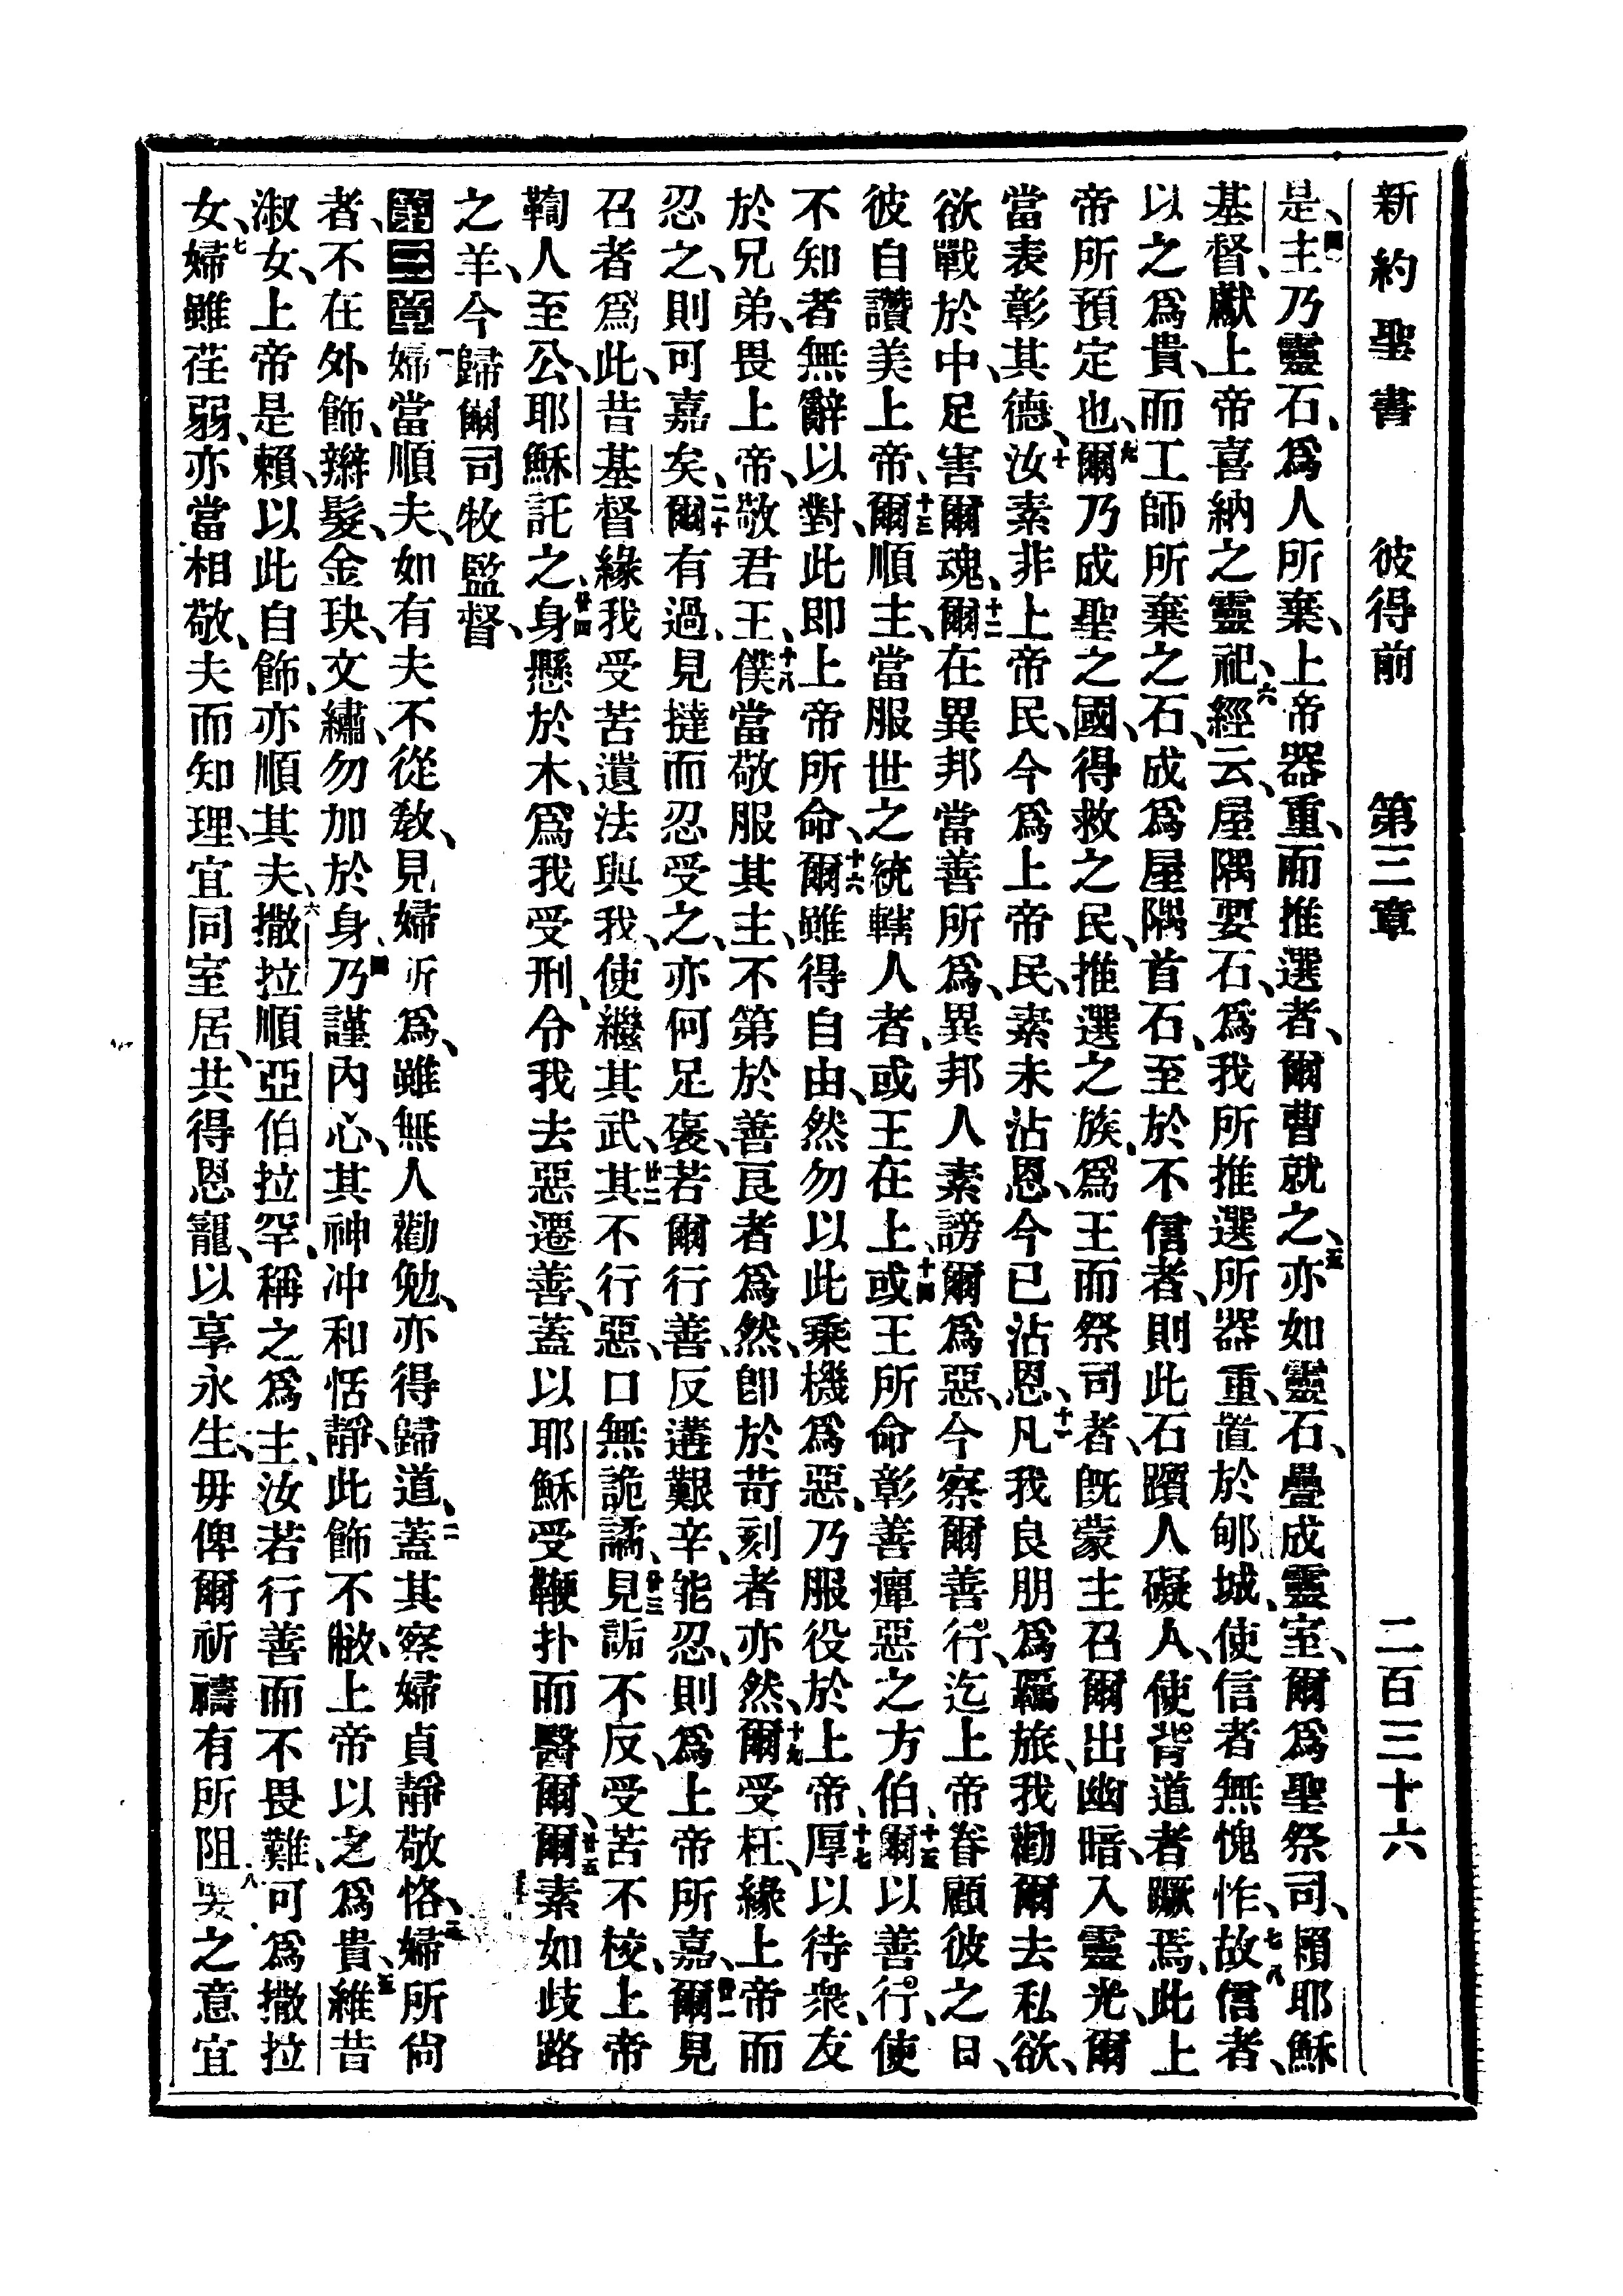 新約聖書 彼得前 第三章 二百三十六
是、四主乃靈石、爲人所棄、上帝器重、而推選者、爾曹就之、五亦如靈石、疊成靈室、爾爲聖祭司、賴耶穌
基督、獻上帝喜納之靈祀、六經云、屋隅要石、爲我所推選所器重、置於郇城、使信者無愧怍、七八故信者、
以之爲貴、而工師所棄之石、成爲屋隅首石、至於不信者、則此石躓人礙人、使背道者蹶焉、此上
帝所預定也、九爾乃成聖之國、得救之民、推選之族、爲王而祭司者、既蒙主召爾出幽暗、入靈光、爾
當表彰其德、十汝素非上帝民、今爲上帝民、素未沾恩、今已沾恩、十一凡我良朋爲羈旅、我勸爾去私欲、
欲戰於中、足害爾魂、十二爾在異邦當善所爲、異邦人素謗爾爲惡、今察爾善行、迄上帝眷顧彼之日、
彼自讚美上帝、十三爾順主、當服世之統轄人者、或王在上、十四或王所命彰善癉惡之方伯、十五爾以善行、使
不知者、無辭以對、此即上帝所命、十六爾雖得自由、然勿以此乘機爲惡、乃服役於上帝、十七厚以待衆、友
於兄弟、畏上帝、敬君王、十八僕當敬服其主、不第於善良者爲然、卽於苛刻者亦然、十九爾受枉、緣上帝而
忍之、則可嘉矣、二十爾有過、見撻而忍受之、亦何足褒、若爾行善、反遘艱辛、能忍、則爲上帝所嘉、廿一爾見
召者爲此、昔基督緣我受苦遺法與我、使繼其武、廿二其不行惡、口無詭譎、廿三見詬不反、受苦不校、上帝
鞫人至公、耶穌託之、廿四身懸於木、爲我受刑、令我去惡遷善、蓋以耶穌受鞭扑而醫爾、廿五爾素如歧路
之羊、今歸爾司牧監督、
第三章一婦當順夫、如有夫不從教、見婦所爲、雖無人勸勉、亦得歸道、二蓋其察婦貞靜敬恪、三婦所尙
者、不在外飾、辮髮、金玦、文繡、勿加於身、四乃謹內心、其神冲和恬靜、此飾不敝、上帝以之爲貴、五維昔
淑女、上帝是賴、以此自飾、亦順其夫、六撒拉順亞伯拉罕、稱之爲主、汝若行善而不畏難、可爲撒拉
女、七婦雖荏弱、亦當相敬、夫而知理、宜同室居、共得恩寵、以享永生、毋俾爾祈禱有所阻、八要之意宜